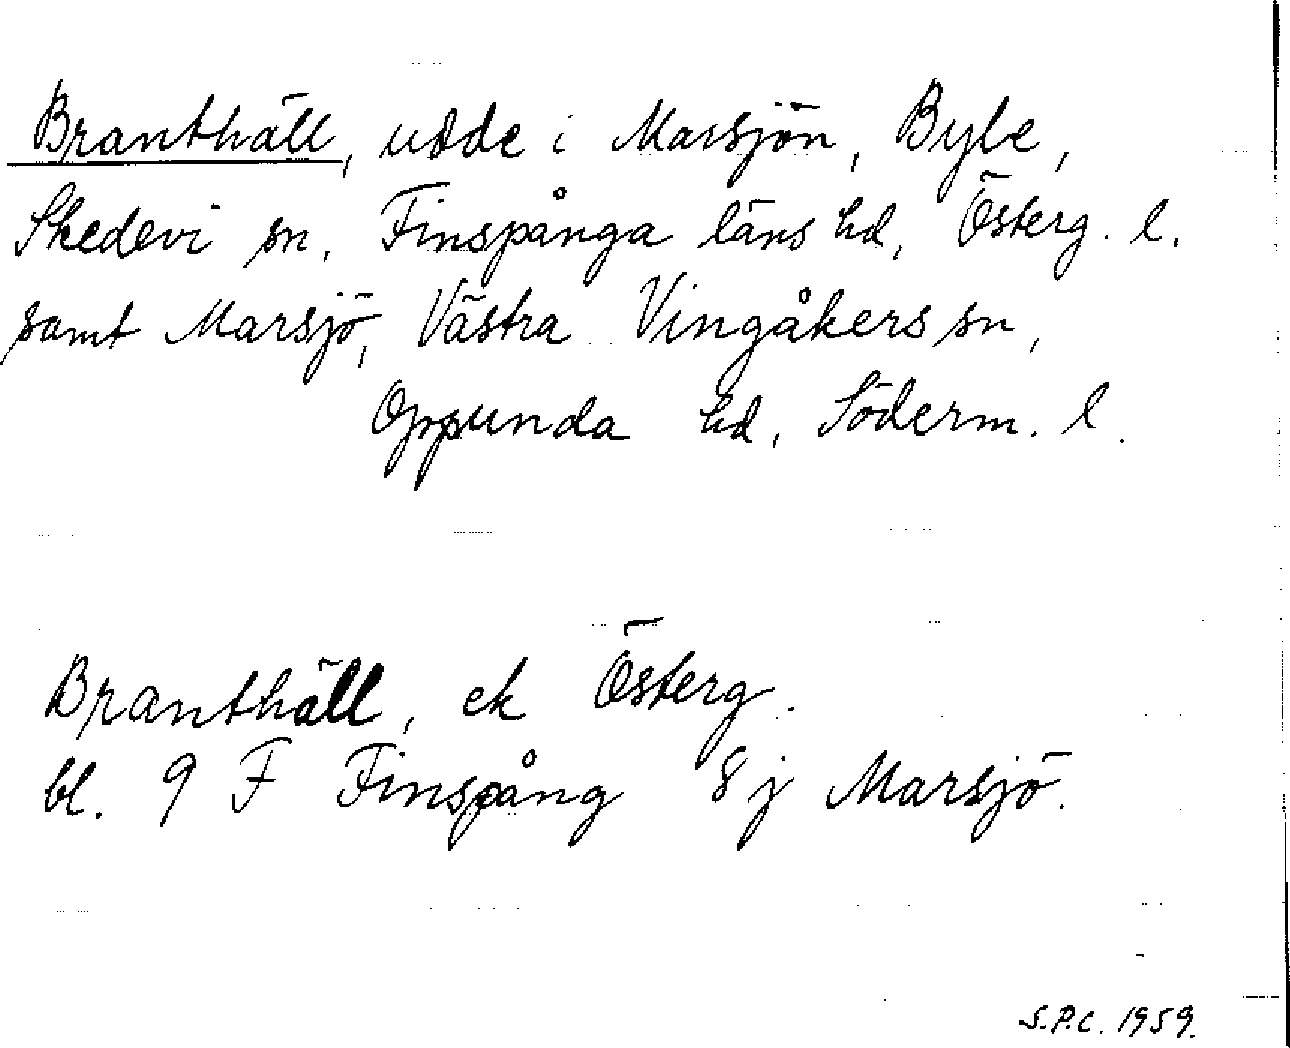 Branthäll, udde i Marsjön, Byle,
Skedevi sn. Finspånga läns hd, Österg. l.
samt Marsjö, Västra Vingåkers sn,
Oppunda hd, Söderm. l.
Branthäll, ek Österg.
bl. 9 F Finspång 8 j Marsjö.
S.P.C. 1959.